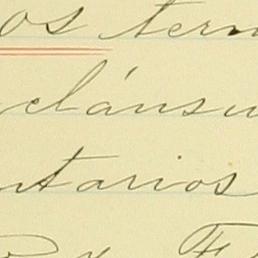 os term
clánsu
ntarios